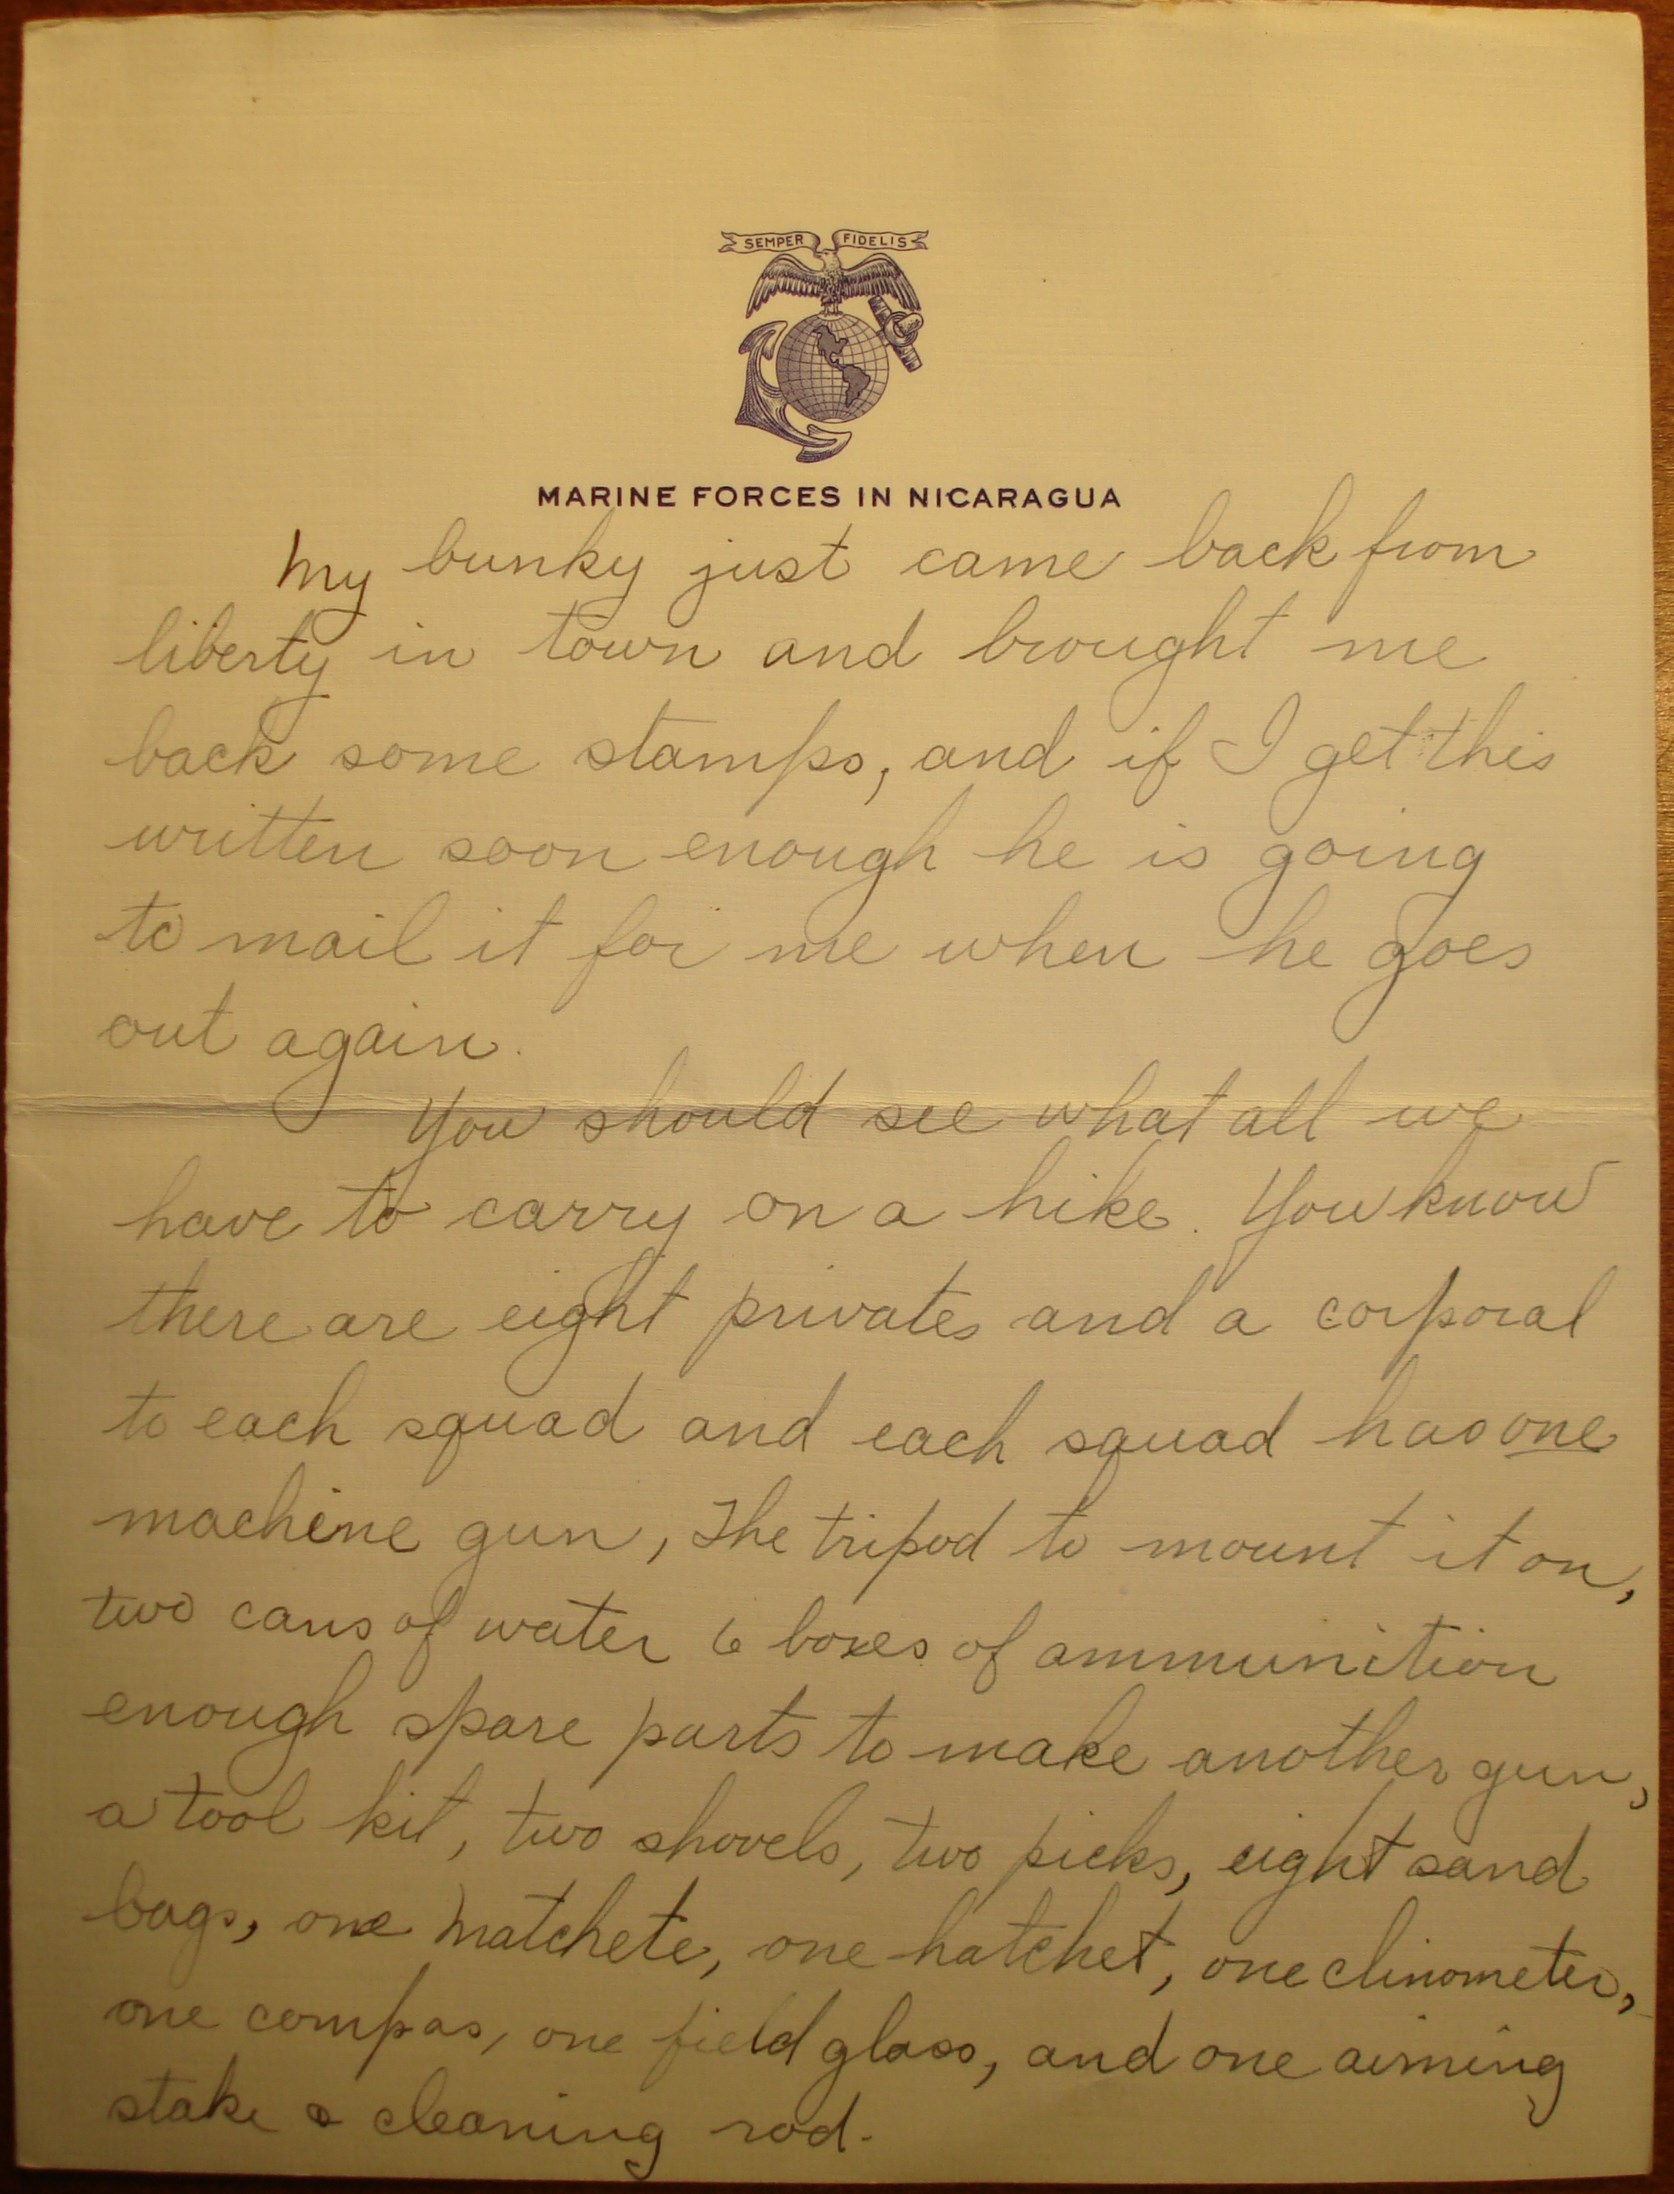 SEMPER FIDELIS
MARINE FORCES IN NICARAGUA
My bunky just came back from
liberty in town and brought me
back some stamps, and if I get this
written soon enough he is going
to mail it for me when he goes
out again.
You should see what all we
have to carry on a hike. You know
there are eight privates and a corporal
to each squad and each squad has one
machine gun, The tripod to mount it on,
two cans of water 6 boxes of ammunition
enough spare parts to make another gun,
a tool kit, two shovels, two picks, eight sand
bags, one matchete, one hatchet, one clinometer,
one compas, one field glass, and one aiming
stake & cleaning rod.